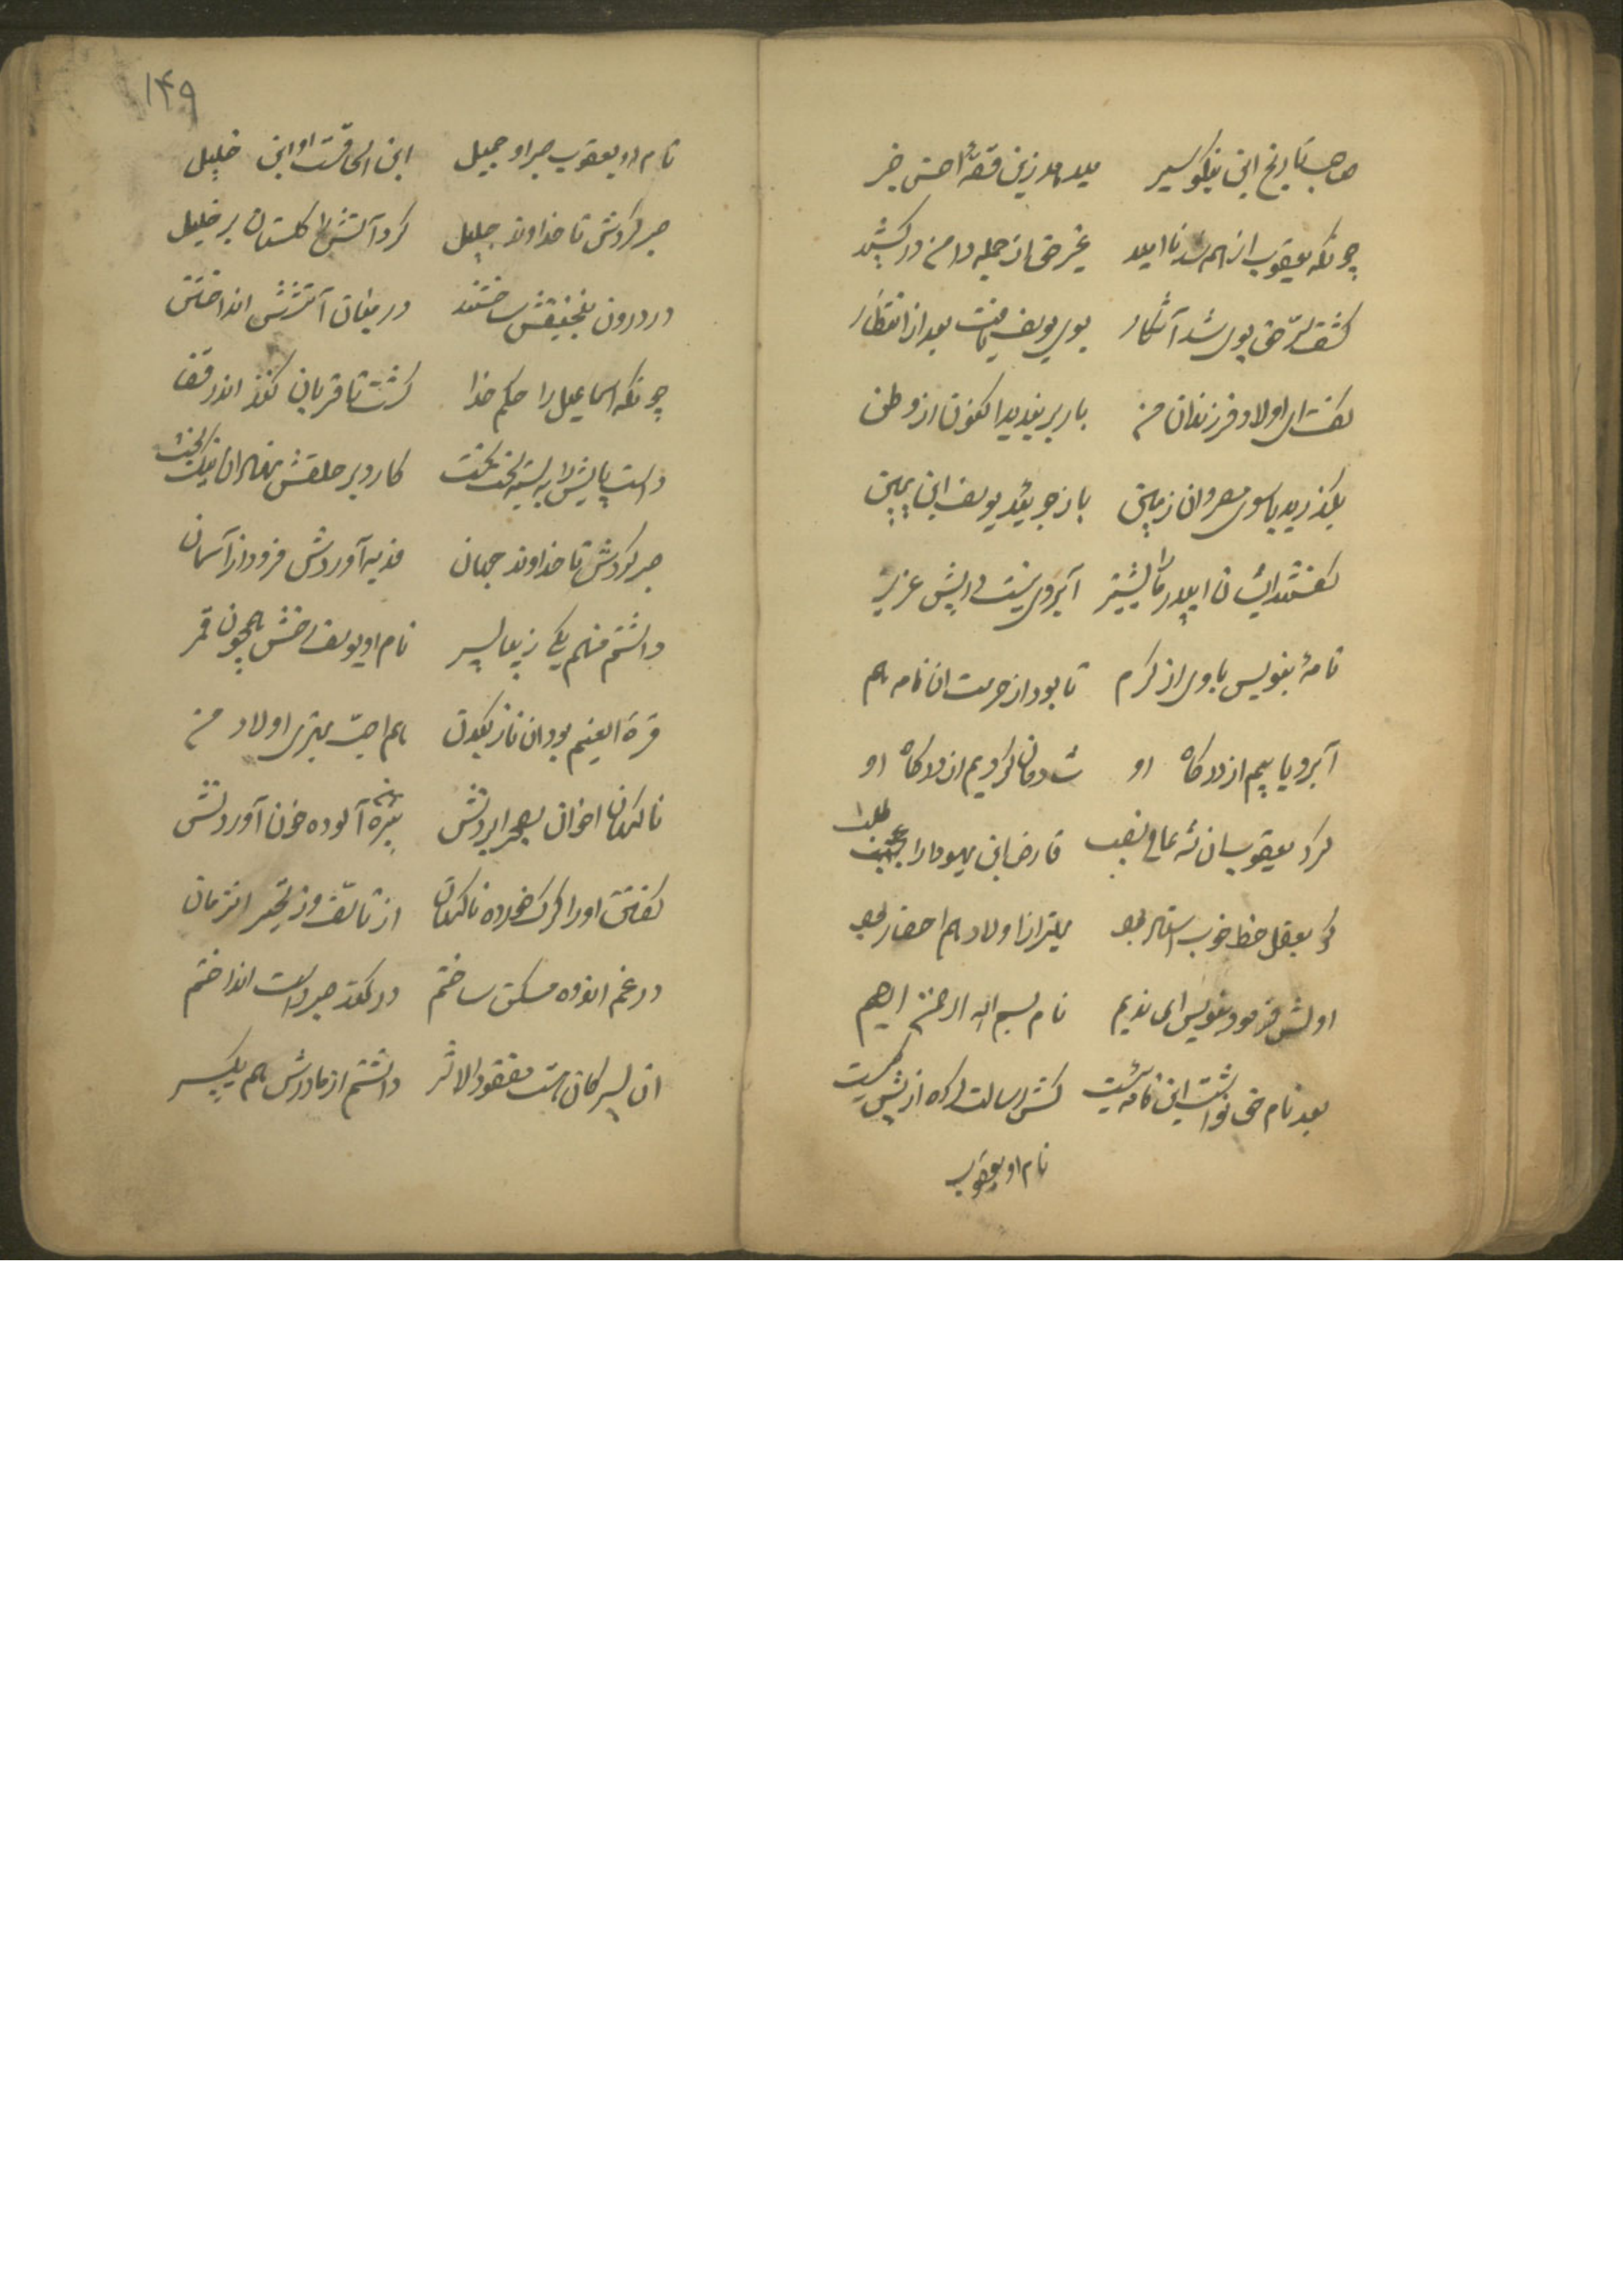 صاحب تاریخ این نیکو سیر میدهد زین قصهٔ احسن خبر
چونکه یعقوب از همه شد ناامید غیر حق از جمله دامن درکشید
کشف سرّ حق بوی شد آشکار بوی یوسف یافت بعد از انتظار
گفت ای اولاد و فرزندان من بار بربندید اکنون از وطن
بگذرید با سوی مصر و ان زمین باز جوئید یوسف ابن یمین
گفتند ایشان ای پدر ما را پیشتر آبروی نیست در پیش عزیز
نامهٔ بنویس با وی از کرم تا بود از حرمت ان نامه هم
آبرو یابیم از درگاه او شادمان گردیم از درگاه او
کرد یعقوب ان شه عالی نصب قارض ابن یهودا را طلب
کو بعقل خط خوب استاد بود بهتر از اولاد هم احضار بود
اولش فرمود بنویس ای ندیم نام بسم الله الرحمن الرحیم
بعد نام حق نوشت این نامه
نام او یعقوب
۱۴۹
نام او یعقوب صبر او جمیل ابن اسحاقست او ابن خلیل
صبر کردش تا خداوند جلیل کرد آتش را گلستان بر خلیل
در درون منجنیقش ساختند در میان آتشش انداختن
چونکه اسماعیل را حکم خدا گشت تا قربان کند اندر قفا
دست پایش را به بسته لخت لخت کارد بر حلقش نهاد ان نیک بخت
صبر کردش تا خداوند جهان فدیه آوردش فرود از آسمان
داشتم منهم یکی زیبا پسر نام او یوسف رخش همچون قمر
قرة العینم بود ان نازک بدن هم احبّ بهتری اولاد من
ناگهان اخوان بصحرا بردنش پیرهن آلوده خون آوردنش
گفتن او را گرگ خورده ناگهان از تاسف وز تحیر انزمان
در غم اندوه مسکن ساختم در کمند صبر دست انداختم
ان پسر کان هست مفقود الاثر داشتم از مادرش هم یک پسر